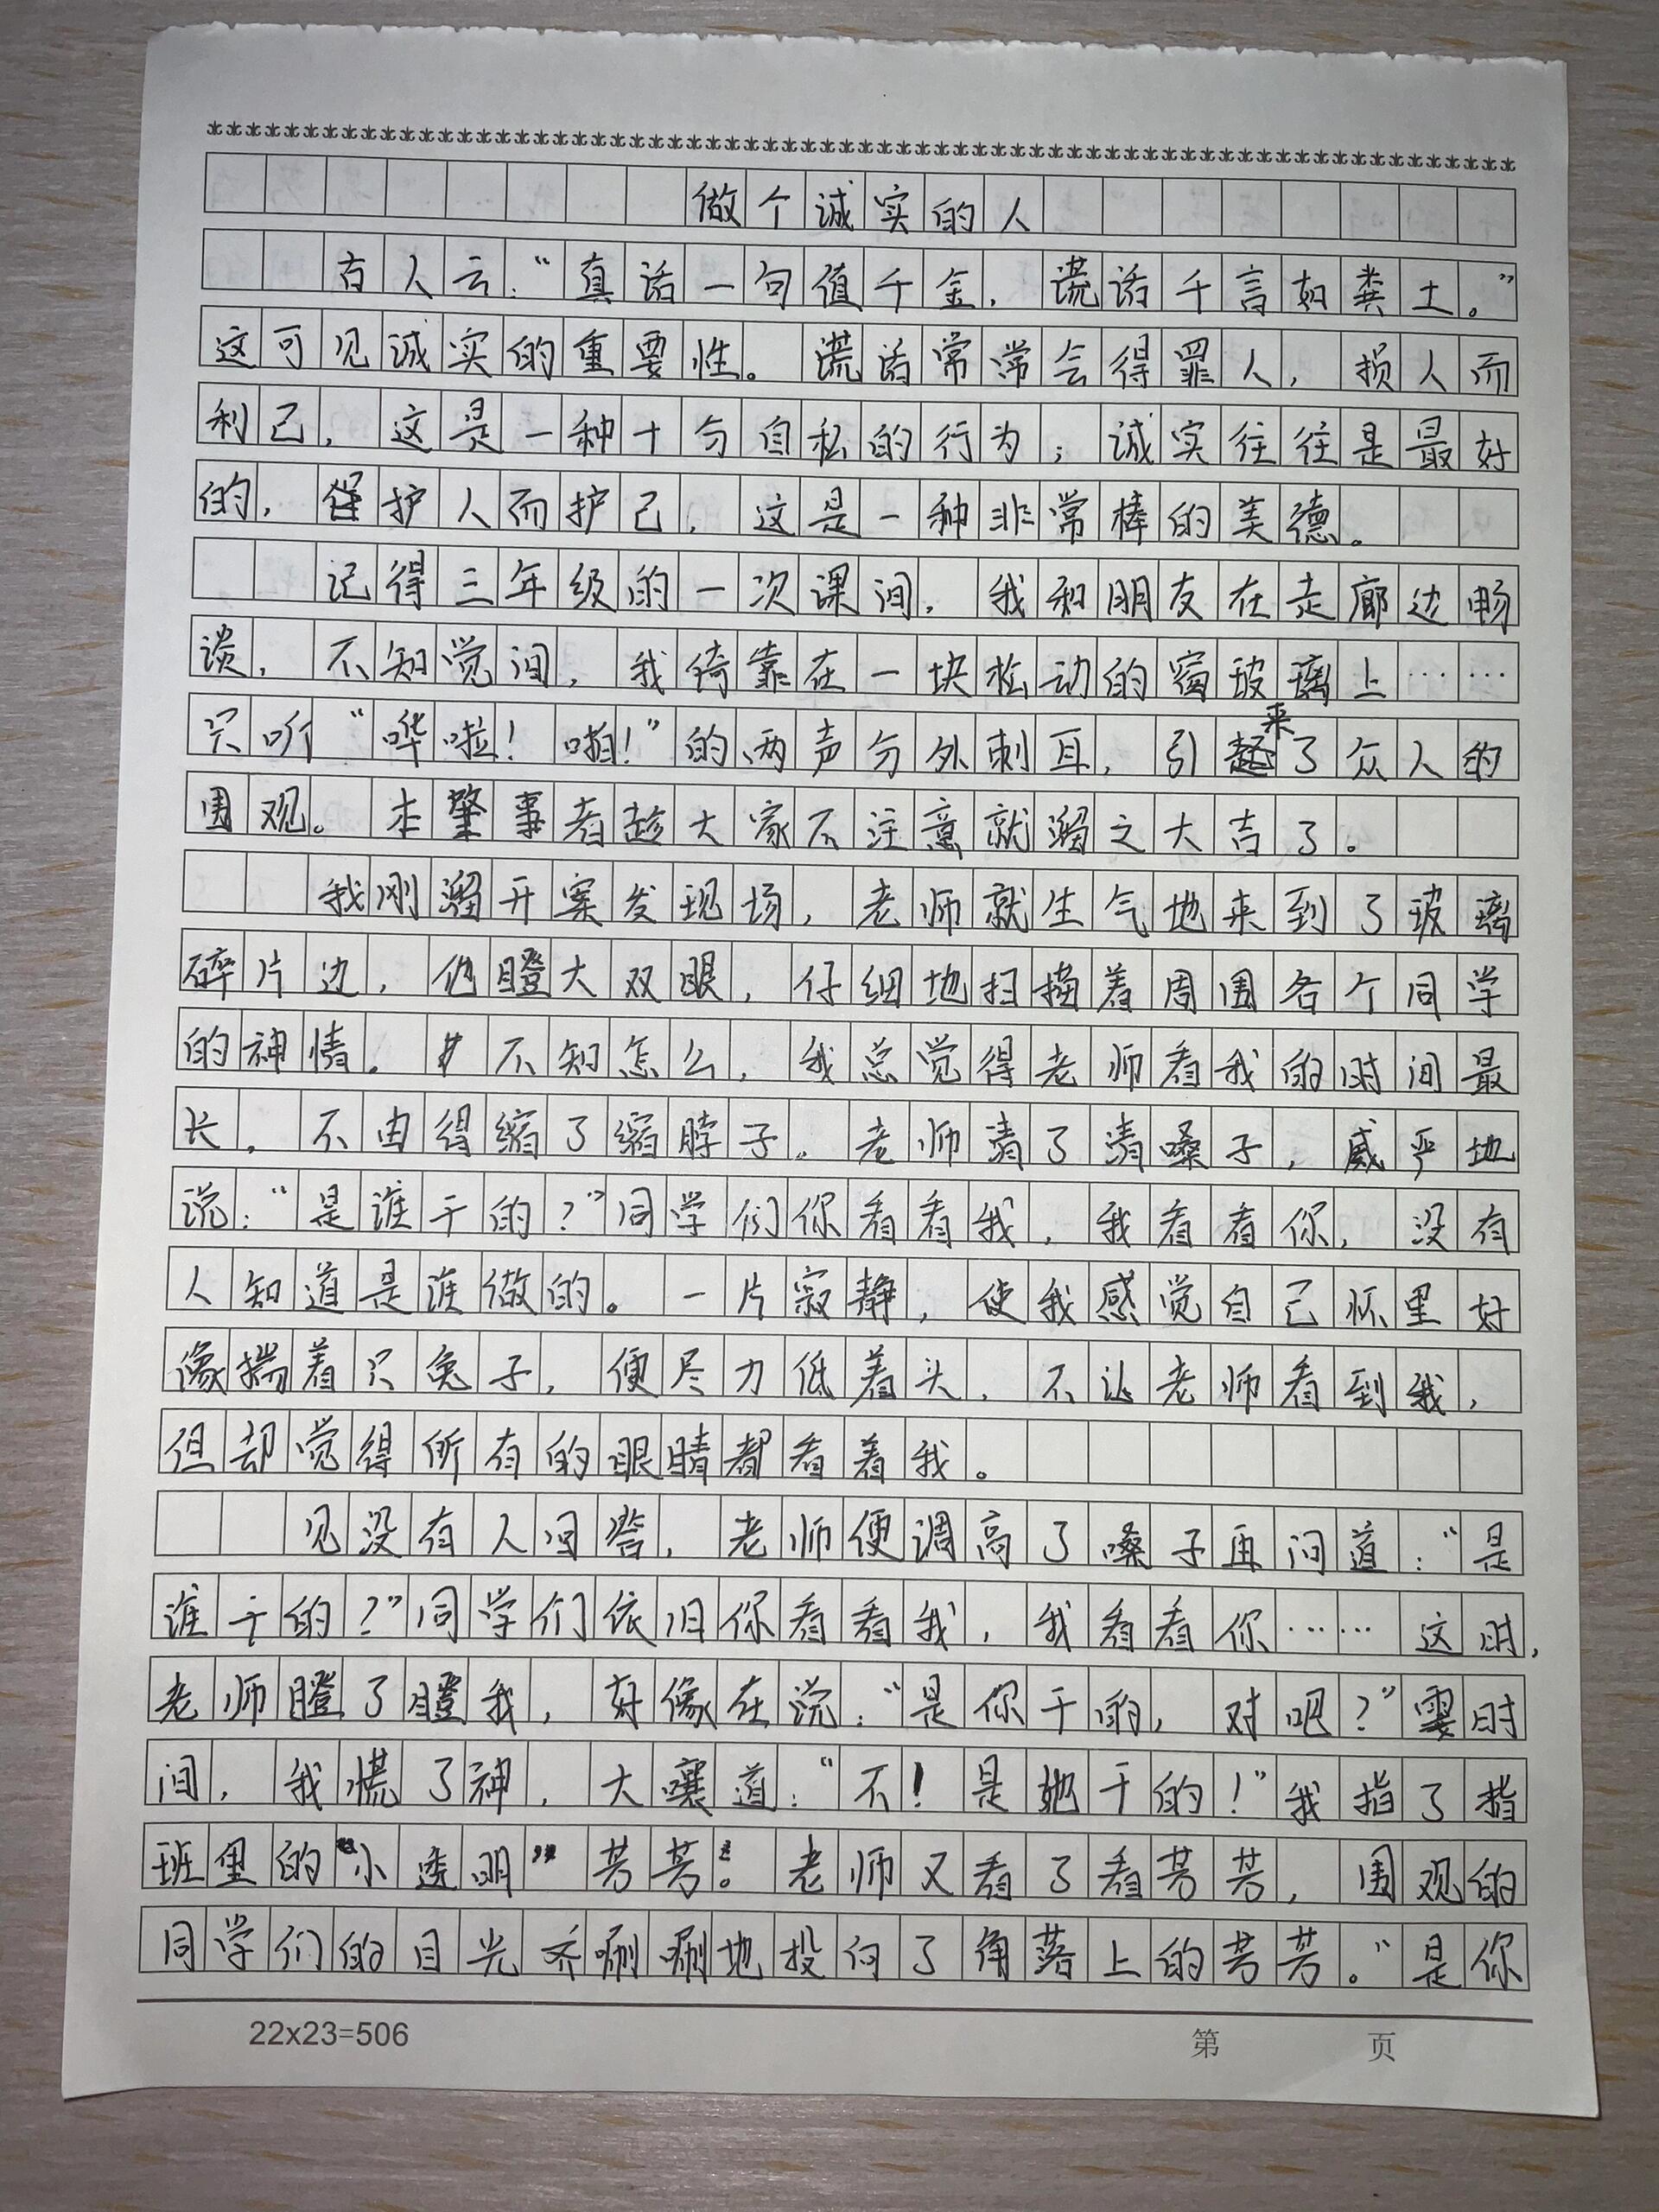 做个诚实的人
有人云：“真话一句值千金，谎话千言如粪土。”
这可见诚实的重要性。谎话常常会得罪人，损人而
利己，这是一种十分自私的行为；诚实往往是最好
的，保护人而护己，这是一种非常棒的美德。
记得三年级的一次课间，我和朋友在走廊边畅
谈，不知觉间，我倚靠在一块松动的窗玻璃上……
只听“哗啦！啪！”的两声分外刺耳，引来了众人的
围观。本肇事者趁大家不注意就溜之大吉了。
我刚溜开案发现场，老师就生气地来到了玻璃
碎片边，他瞪大双眼，仔细地扫描着周围各个同学
的神情。不知怎么，我总觉得老师看我的时间最
长，不由得缩了缩脖子。老师清了清嗓子，威严地
说：“是谁干的？”同学们你看看我，我看看你，没有
人知道是谁做的。一片寂静，使我感觉自己怀里好
像揣着只兔子，便尽力低着头，不让老师看到我，
但却觉得所有的眼睛都看着我。
见没有人回答，老师便调高了嗓子再问道：“是
谁干的？”同学们依旧你看看我，我看看你……这时，
老师瞪了瞪我，好像在说：“是你干的，对吧？”霎时
间，我慌了神，大嚷道：“不！是她干的！”我指了指
班里的“小透明”芳芳。老师又看了看芳芳，围观的
同学们的目光齐唰唰地投向了角落上的芳芳。“是你
22x23=506
第 页